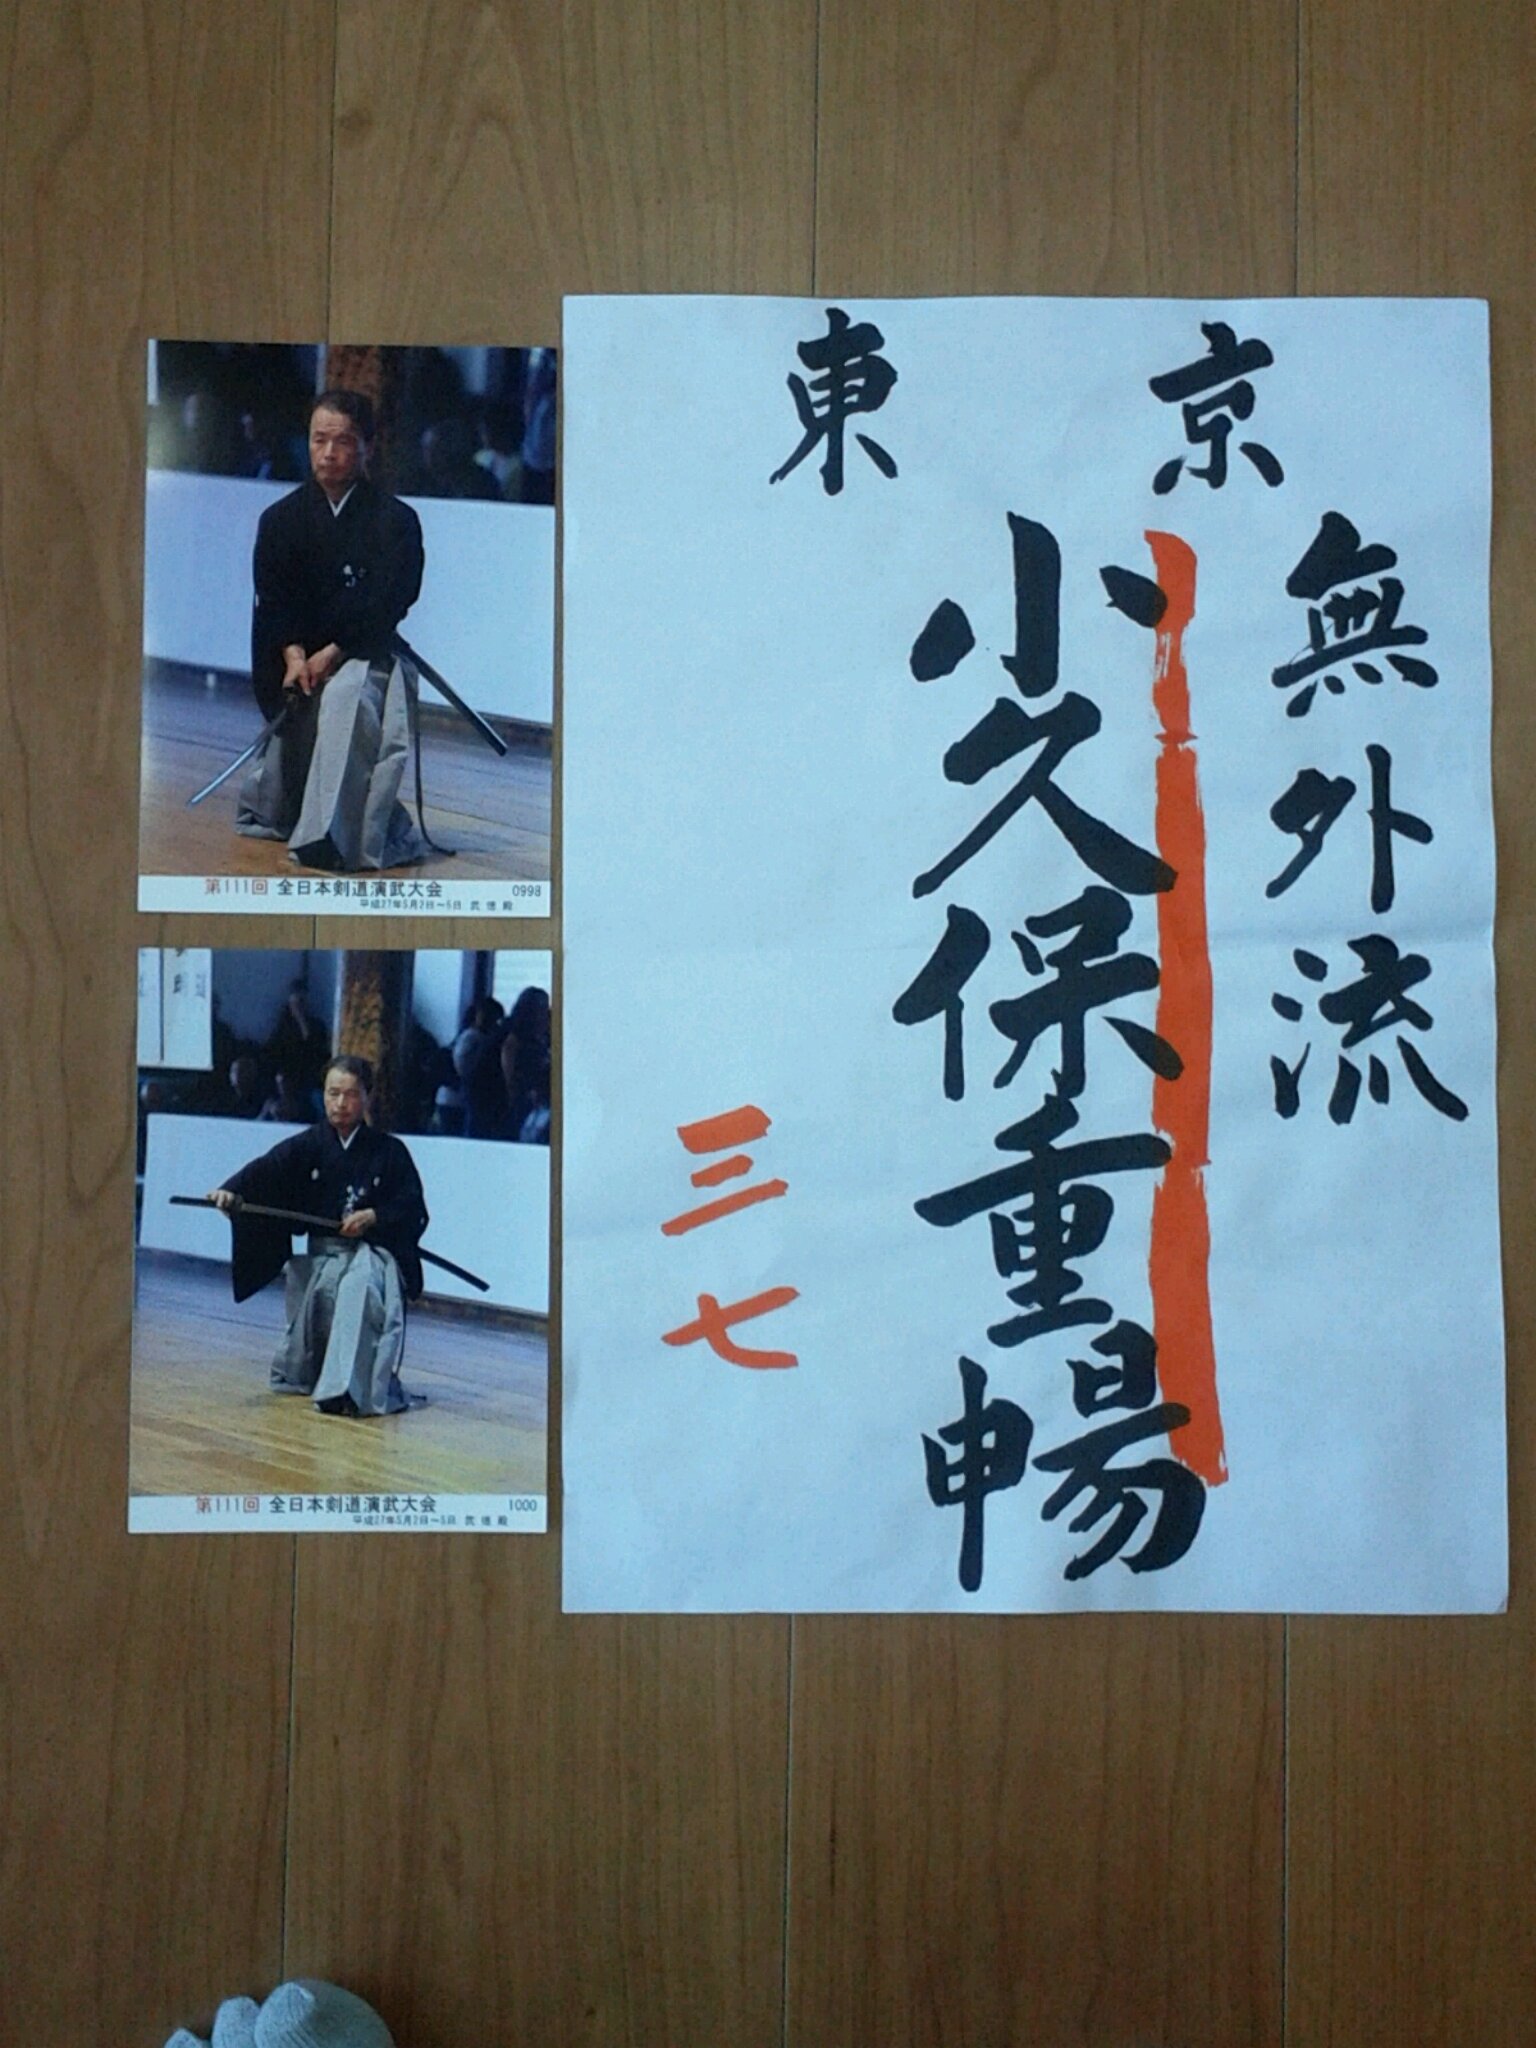 第111回 全日本剣道演武大会 0998
平成27年5月2日～5日 武徳殿
第111回 全日本剣道演武大会 1000
平成27年5月2日～5日 武徳殿
東京
無外流
小久保重暢
三七